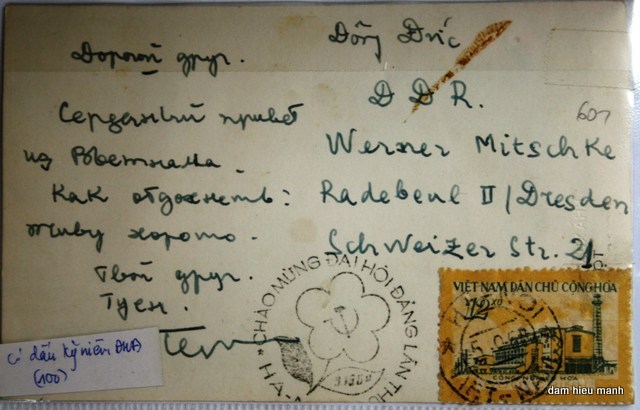 Дорогой друг.
Сердечный привет
из Вьетнама.
Как отдохнеть:
живу хорошо.
Твой друг.
Туен.
Đông Đức
D D R.
601
Werner Mitschke
Radebeul II / Dresden
Schweizer Str. 21
"CHÀO MỪNG ĐẠI HỘI ĐẢNG LẦN THỨ
HÀ-
9.1960
VIỆT NAM DÂN CHỦ CỘNG HÒA
12 xu
HANOI
VIET-NAM
có dấu kỷ niệm
(100)
dam hieu manh